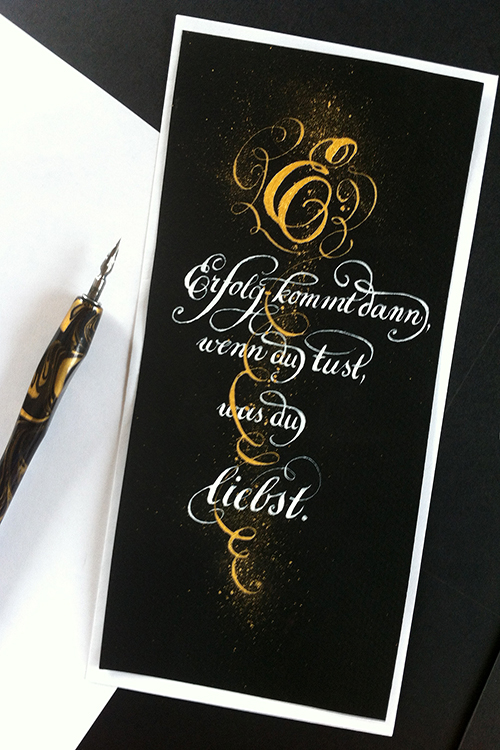 E
Erfolg kommt dann,
wenn du tust,
was du
liebst.